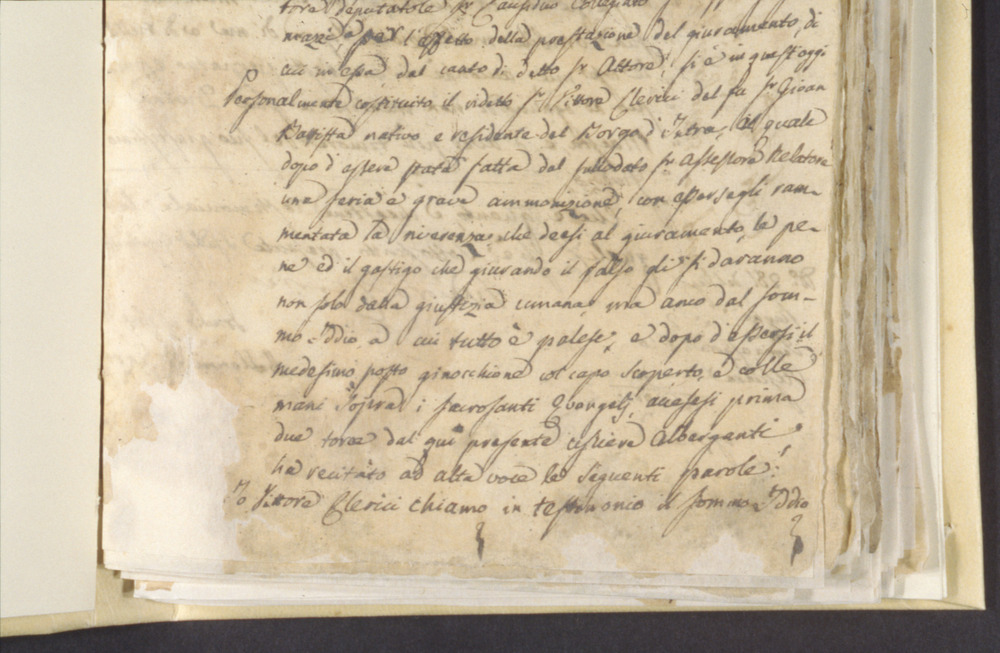 tore deputatole Sr Causidico Collegiato
per l'effetto della prestazione del giuramento, di
cui in essa dal canto di detto Sr Attore, si è in quest'oggi
Personalmente costituito il videtto Sr Vittore Clerici del fu Sr Gioan
Battista nativo e residente del Borgo d'Intra, al quale
dopo d'essere stata fatta dal sullodato Sr Assessore Relatore
una seria e grave ammonizione, con essersegli ram-
mentata la riverenza, che deesi al giuramento, le pe-
ne ed il gastigo che giurando il falso gli si daranno
non solo dalla giustizia umana, ma anco dal Som-
mo Iddio a cui tutto è palese, e dopo d'essersi il
medesimo posto ginocchione col capo scoperto, e colle
mani sopra i sacrosanti Evangelj, accesesi prima
due torce dal qui presente usciere Alberganti
ha recitato ad alta voce le seguenti parole:
Io Vittore Clerici chiamo in testimonio il Sommo Iddio